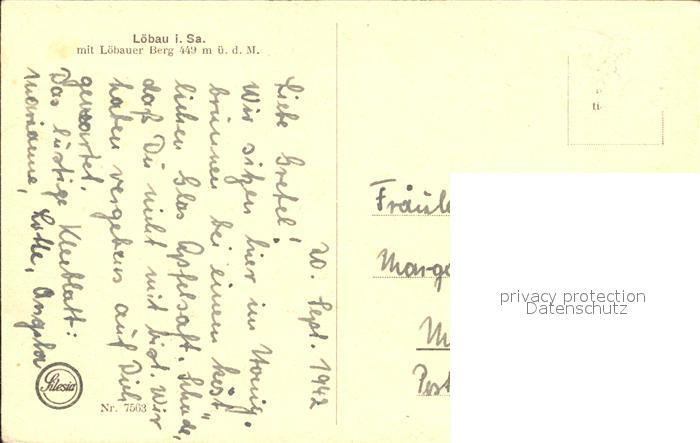 Löbau i. Sa.
mit Löbauer Berg 449 m ü. d. M.
20. Sept. 1942
Liebe Gretel!
Wir sitzen hier im Honig-
brunnen bei einem köst-
lichen Glas Apfelsaft. Schade,
daß Du nicht mit bist. Wir
haben vergebens auf Dich
gewartet.
Das lustige Kleeblatt:
Marianne, Lotte, Angela
Silesia
Nr. 7563
Fräule
Marga
Post
privacy protection
Datenschutz